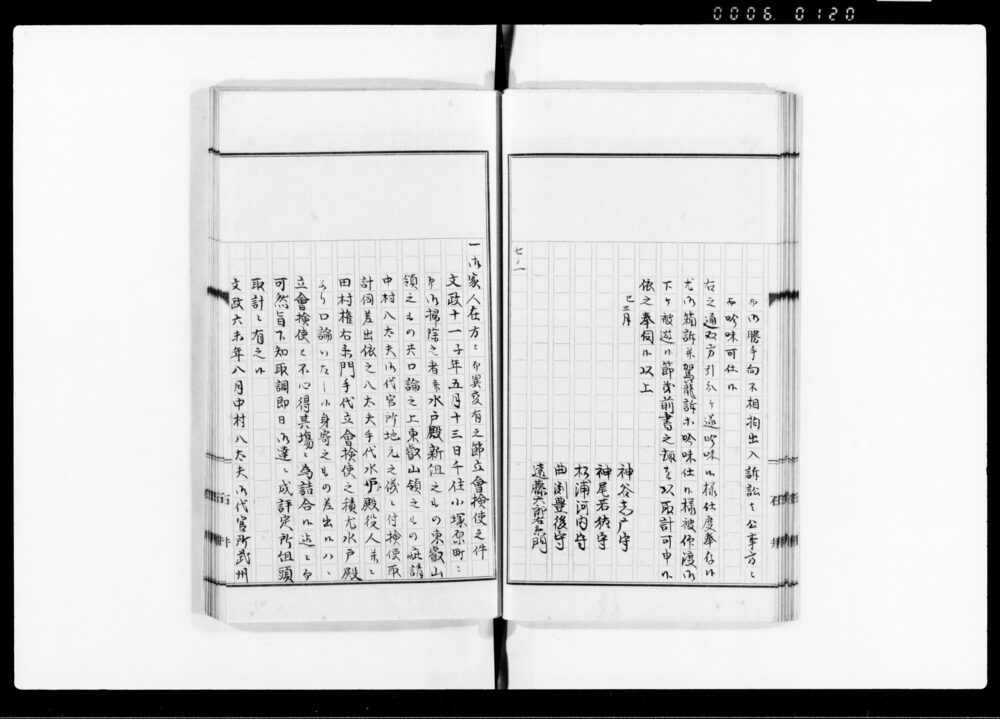 0006.0120
而御勝手向不相拘出入訴訟者公事方ニ
而吟味可仕候
右之通双方引分ケ遂吟味候様仕度奉存候
尤御箱訴并駕籠訴等吟味仕候様被仰渡御
下ケ被遊候節者前書之趣を以取計可申候
依之奉伺候以上
巳三月
神谷志摩守
神尾若狭守
松浦河内守
曲渕豊後守
遠藤六郎右衛門
七ノ一
一御家人在方ニ而異変有之節立會検使之件
文政十一子年五月十三日千住小塚原町ニ
而御掃除之者水戸殿新組之もの東叡山
領之もの共口論之上東叡山領之もの疵請
中村八太夫御代官所地元之儀ニ付検使取
計伺差出依之八太夫手代水戸殿役人并ニ
田村権右衛門手代立會検使之積尤水戸殿
より口論いたし候身寄之もの差出候ハヽ
立會検使と不心得其場ニ為詰合候迄ニ而
可然旨下知取調即日御達ニ成評定所組頭
取計ニ有之候
文政六未年八月中村八太夫御代官所武州